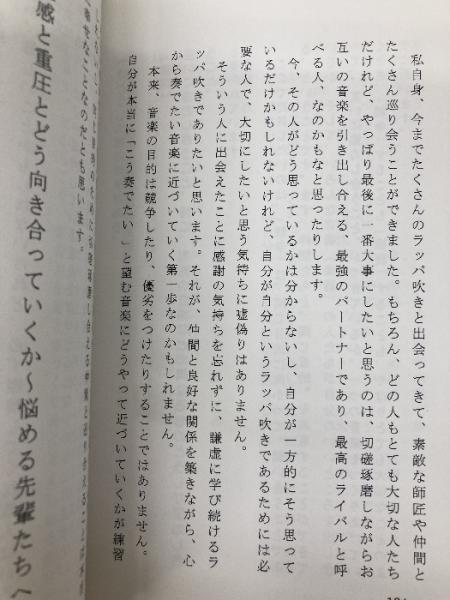 私自身、今までたくさんのラッパ吹きと出会ってきて、素敵な師匠や仲間と
たくさん巡り会うことができました。もちろん、どの人もとても大切な人たち
だけれど、やっぱり最後に一番大事にしたいと思うのは、切磋琢磨しながらお
互いの音楽を引き出し合える、最強のパートナーであり、最高のライバルと呼
べる人、なのかもなと思ったりします。
今、その人がどう思っているかは分からないし、自分が一方的にそう思って
いるだけかもしれないけれど、自分が自分というラッパ吹きであるためには必
要な人で、大切にしたいと思う気持ちに嘘偽りはありません。
そういう人に出会えたことに感謝の気持ちを忘れずに、謙虚に学び続けるラ
ッパ吹きでありたいと思います。それが、仲間と良好な関係を築きながら、心
から奏でたい音楽に近づいていく第一歩なのかもしれません。
本来、音楽の目的は競争したり、優劣をつけたりすることではありません。
自分が本当に「こう奏でたい」と望む音楽にどうやって近づいていくかが練習
幸せなことなのだとも思います。
感と重圧とどう向き合っていくか〜悩める先輩たちへ